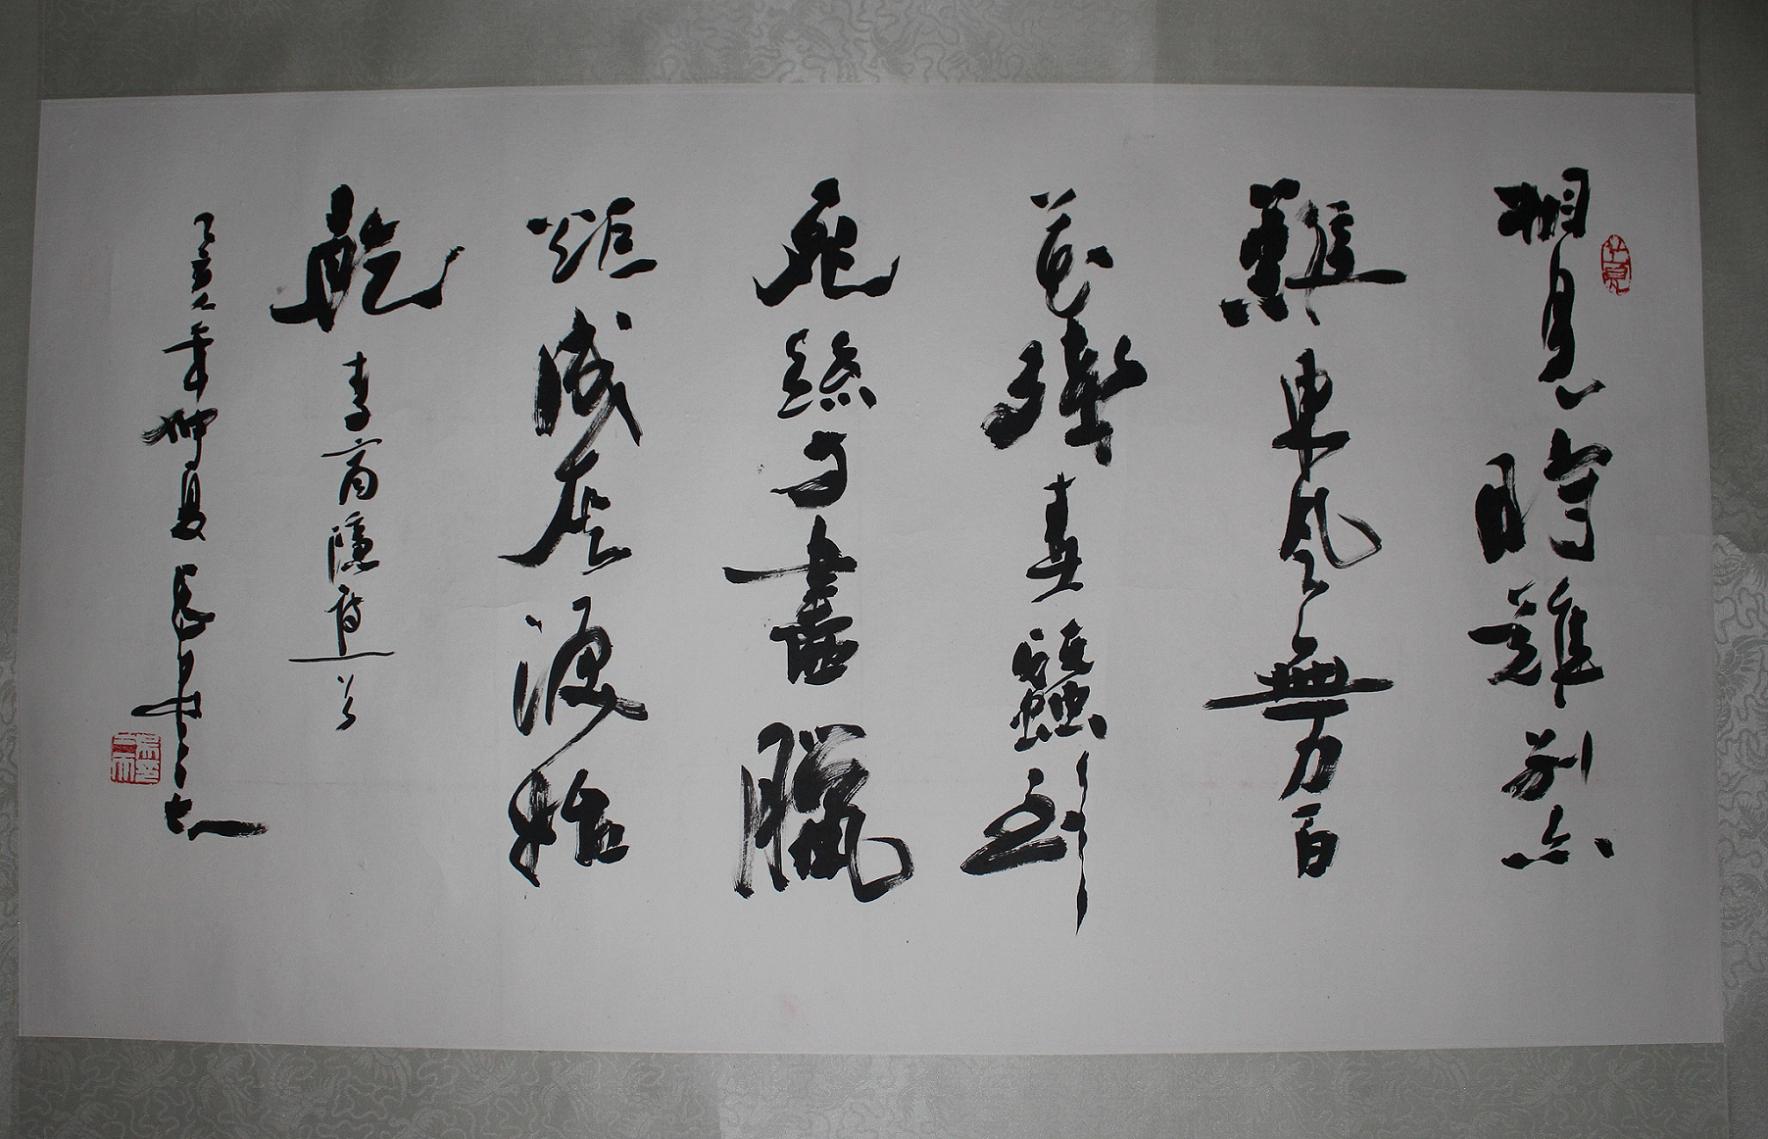 相見時難別亦
難東風無力百
花殘春蠶到
死絲方盡蠟
炬成灰淚始
乾 李商隱詩一首
丁亥年仲夏